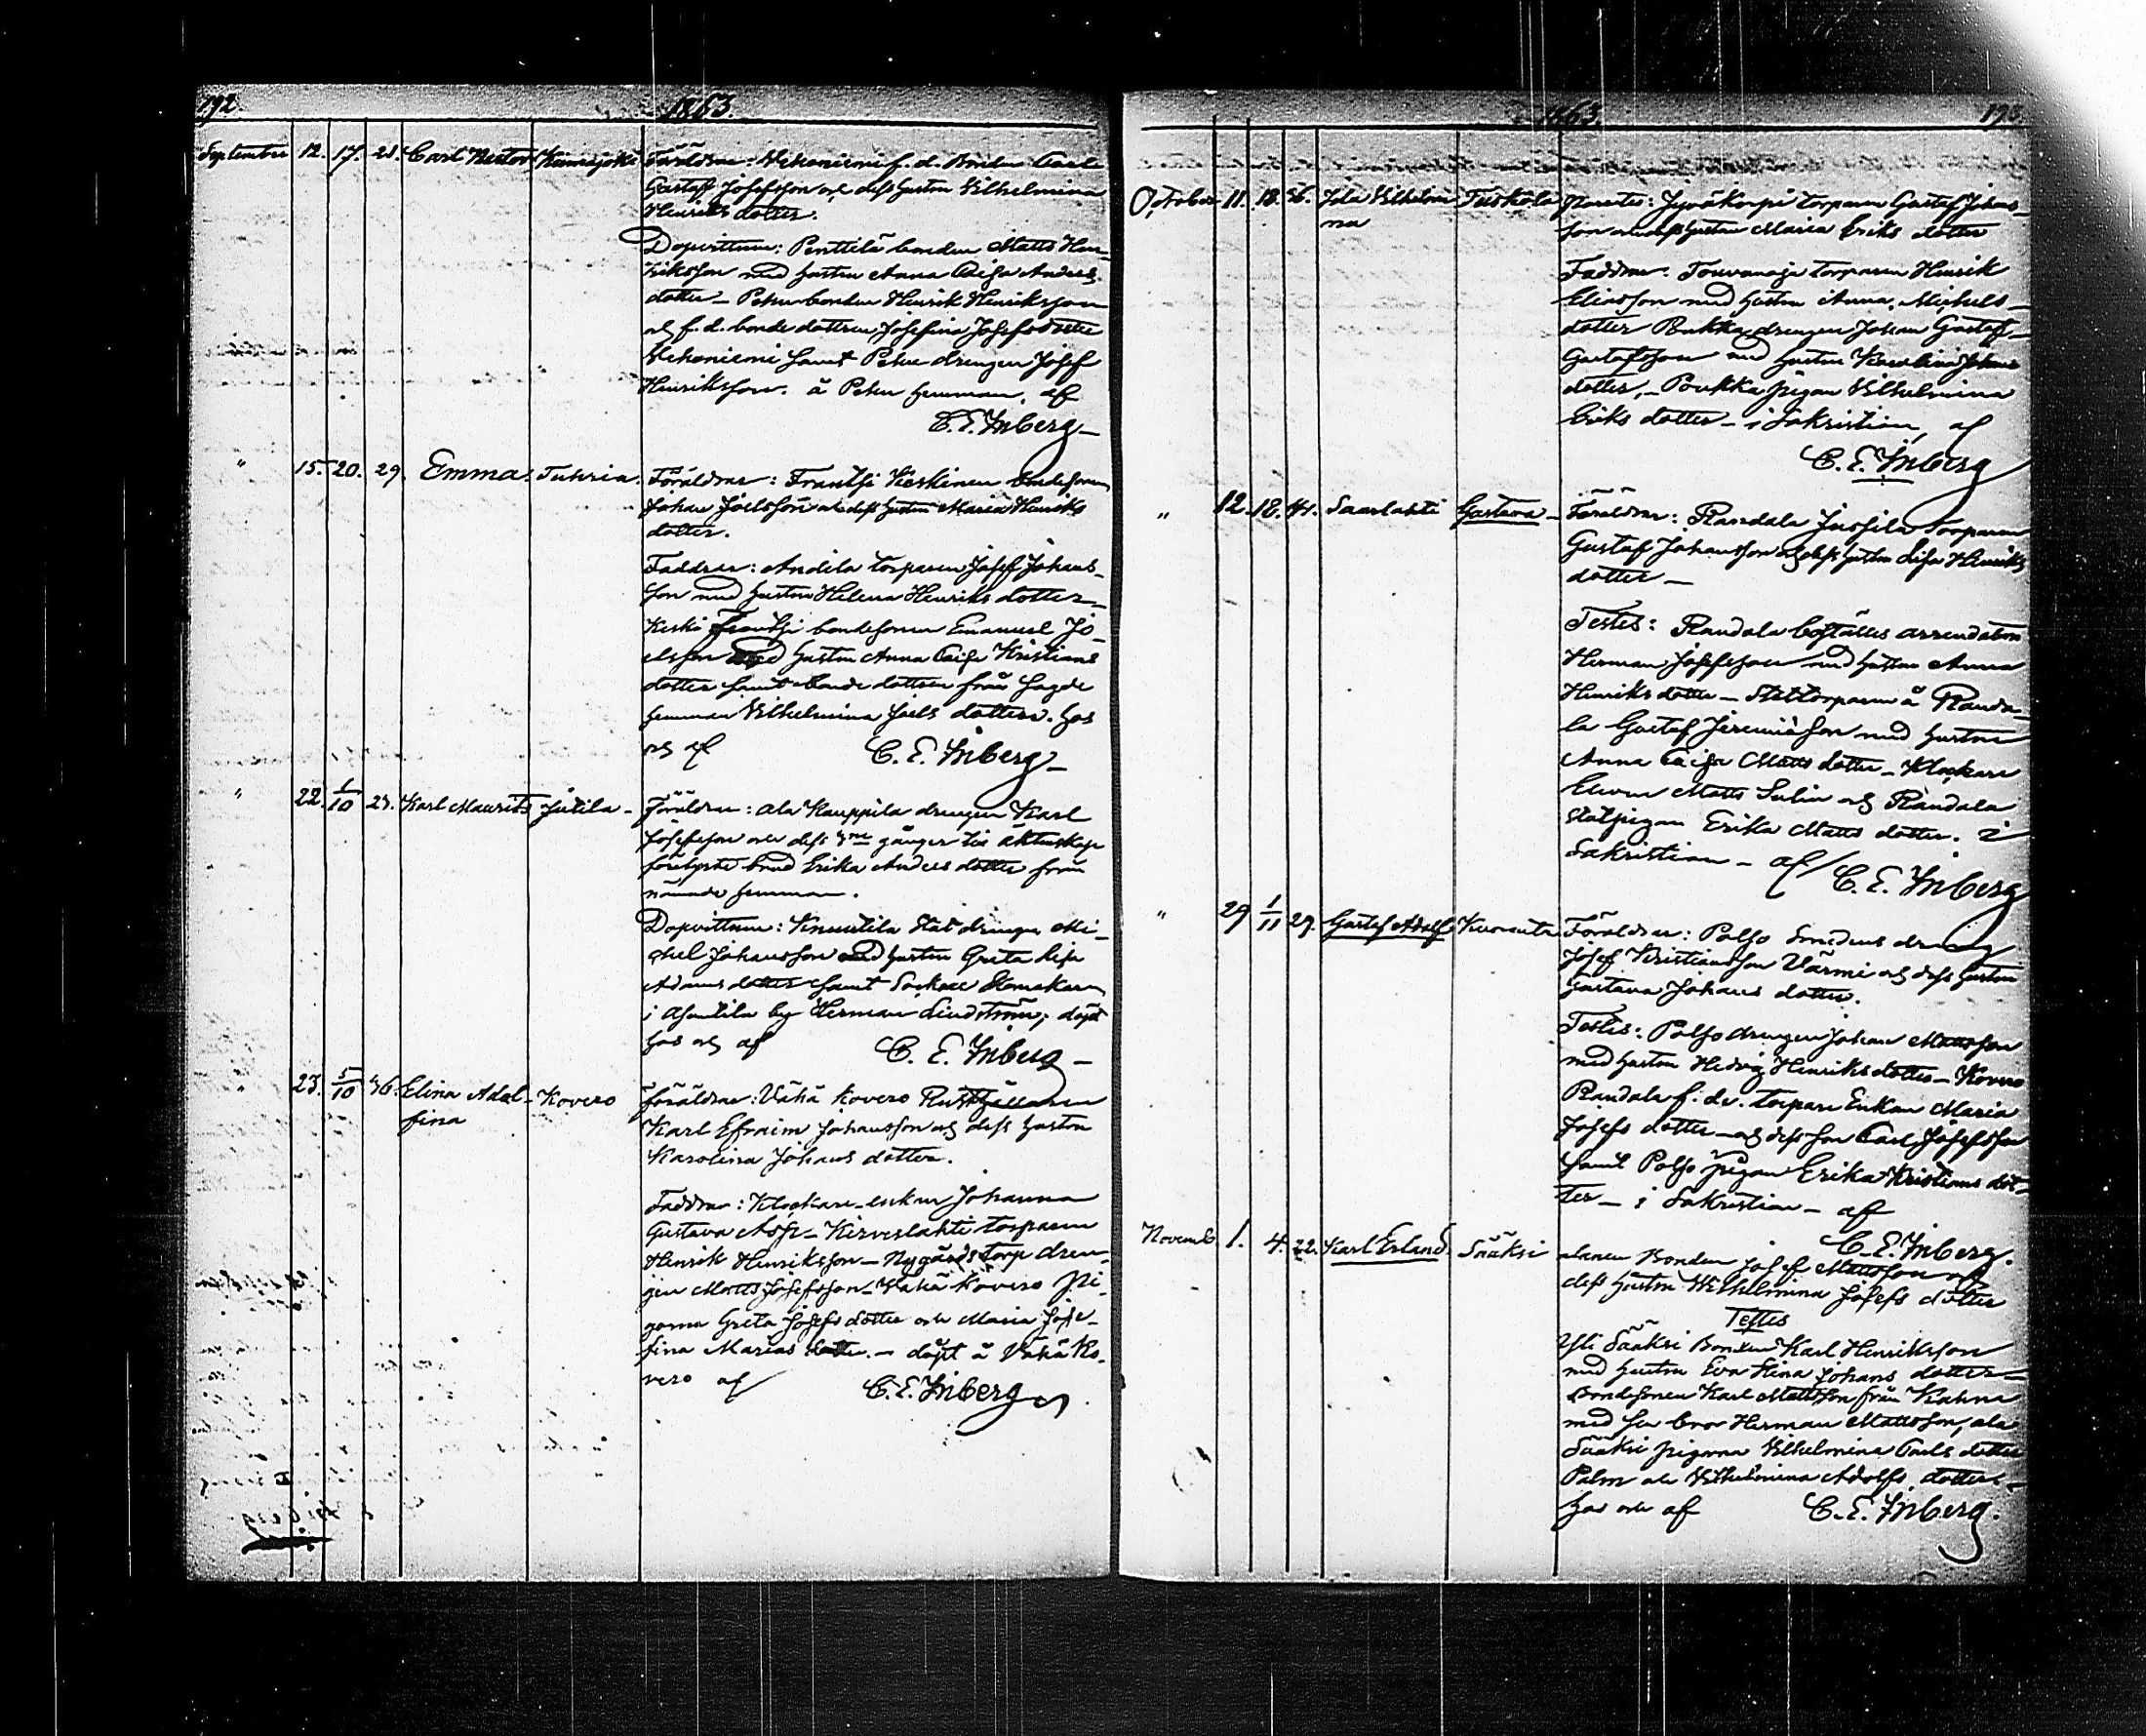 192.
1863.
September 12. 17. 28. Carl Nestor Kinnasjoki Föräldrar: Vehoniemi f. d. Bonden Carl
Gustaf Josefsson och dess hustru Vilhelmina
Henriks dotter.
Dopvittnen: Penttilä bonden Matts Hen-
riksson med hustru Anna Caisa Anders
dotter _ Petru bonden Henrik Henriksson
och f. d. bonde dottren Josefina Josefsdotter
Vehoniemi samt Petru drengen Josef
Henriksson. å Petru hemman, af
C. E. Inberg _
" 15. 20. 29. Emma. Tuhria. Föräldrar: Frantsi Keskinen bondesonen
Johan Joelsson och dess hustru Maria Henriks
dotter.
Faddrar: Andila torparen Josef Johans-
son med hustru Helena Henriks dotter _
Keski Frantsi bondesonen Emanuel Jo-
elsson med hustru Anna Caisa Kristians
dotter samt bonde dottren från
hemman Vilhelmina Joels dotter. hos
och af C. E. Inberg _
" 22. 1/10 23. Karl Maurits Jutila - Föräldrar: Ala Kauppila drengen Karl
Josefsson och dess 3ne gånger till äktenskap
förelyste brud Erika Anders dotter från
nämnde hemman.
Dopvittnen: Knuutila Stat drengen Mi-
chel Johansson med hustru Greta Lisa
Adams dotter samt Socken Skomakaren
i Asuntila by Herman Lindström; döpt
hos och af C. E. Inberg _
" 23. 5/10 36. Elina Adol- Kovero Föräldrar: Vähä Kovero Rusthållaren
fina
Karl Efraim Johansson och dess hustru
Karolina Johans dotter.
Faddrar: Klockare-enkan Johanna
Gustava Asp _ Kirveslahti torparen
Henrik Henriksson _ Nygårds torp dren-
gen Matts Josefsson _ Vähä Kovero Pi-
gorna Greta Josefs dotter och Maria Jose-
fina Marias dotter. _ döpt å Vähä Ko-
vero af C. E. Inberg
1863.
193.
October 11. 18. 36. Ida Vilhelmi- Tuiskola Parentes: Jyväkorpi torparen Gustaf Johans-
na
son och dess hustru Maria Eriks dotter
Faddrar: Torparen Henrik
Eliasson med hustru Anna Michels-
dotter Pukka drengen Johan Gustaf
Gustafsson med hustru Karolina Johans
dotter, _ Poukka pigan Vilhelmina
Eriks dotter _ i Sakristian, af
C. E. Inberg
" 12. 18. 41. Saarlahti Gustava _ Föräldrar: Randala Jussila torparen
Gustaf Johansson och dess hustru Lisa Henriks
dotter _
Testes: Randala boställes arrendatorn
Herman Josefsson med hustru Anna
Henriks dotter _ Stattorparen å Randa-
la Gustaf Jeremiasson med hustru
Anna Caisa Matts dotter _ Klockare
Eleven Matts Salin och Randala
statpigan Erika Matts dotter. i
Sakristian _ af C. E. Inberg
" 29 1/11 29. Gustaf Adolf Kuoranta Föräldrar: Polso Smedens dreng
Josef Kristiansson Värmi och dess hustru
Gustava Johans dotter.
Testes: Polso drengen Johan Mattsson
med hustru Hedvig Henriks dotter _ Kovero
Randala f. d. torpare Enkan Maria
Josefs dotter _ och dess son Carl Josefsson
samt Polso pigan Erika Kristians dot-
ter _ i Sakristian _ af
C. E. Inberg.
November 1. 4. 22. Karl Erland. Sääksi alanen Bonden Josef Mattsson och
dess hustru Wilhelmina Josefs dotter
Testes
Yli Sääksi Bonden Karl Henriksson
med hustru Eva Stina Johans dotter _
Bondesonen Karl Mattsson från Kahra
med sin bror Herman Mattsson, ala
Sääksi pigorna Vilhelmina Carls dotter
Palm och Vilhelmina Adolfs dotter _
hos och af C. E. Inberg.